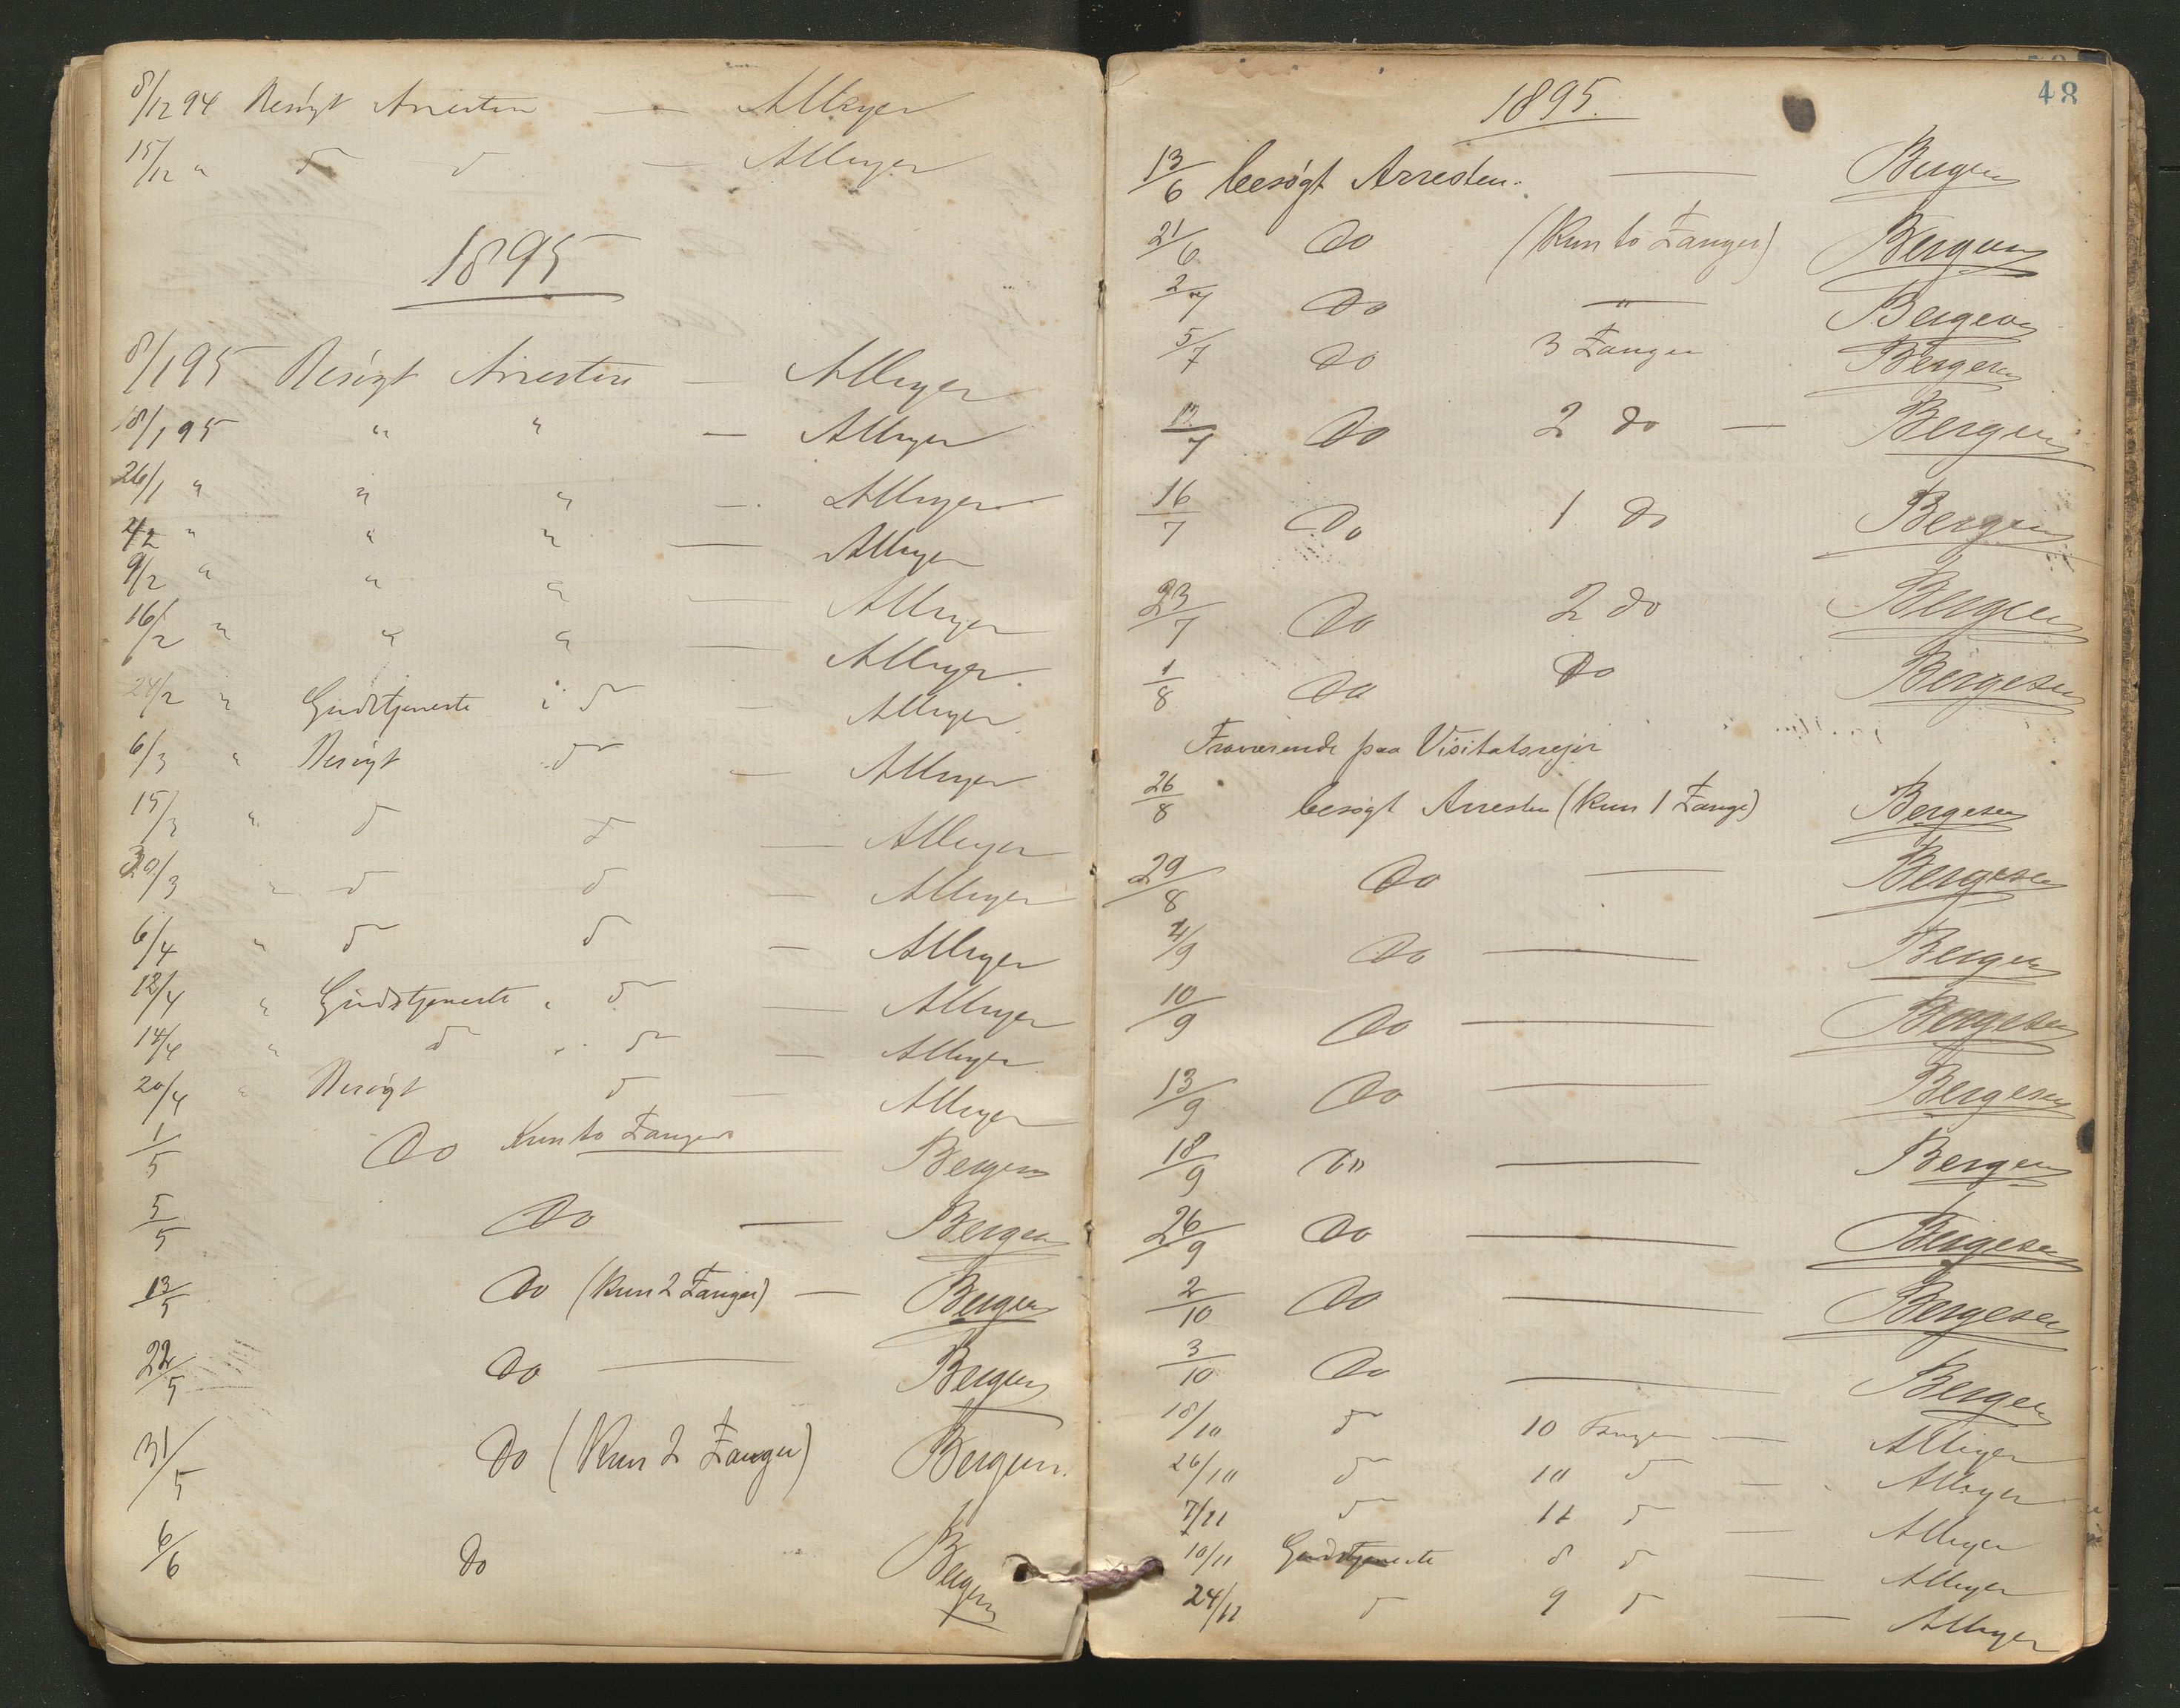 8/12 94 Besøgt Arresten — AMeyer
15/12 " d d — AMeyer
1895
8/1 95 Besøgt Arresten — AMeyer
18/1 95 " " — AMeyer
26/1 " " " — AMeyer
4/2 " " " — AMeyer
9/2 " " " — AMeyer
16/2 " " " — AMeyer
24/2 " Gudstjeneste i do — AMeyer
6/3 " Besøgt do — AMeyer
15/3 " d d — AMeyer
30/3 " d d — AMeyer
6/4 " d d — AMeyer
12/4 " Gudstjeneste i d — AMeyer
14/4 " d i d — AMeyer
20/4 " Besøgt d — AMeyer
1/5 Do Kun to Fanger — Bergesen
5/5 Do — Bergesen
13/5 Do (kun 2 Fanger) — Bergesen
22/5 Do — Bergesen
31/5 Do (Kun 2 Fanger) Bergesen.
6/6 Do Bergesen
48
1895.
13/6 besøgt Arresten. — Bergesen
21/6 Do (Kun to Fanger) Bergesen
2/7 Do — " — Bergesen
5/7 Do 3 Fanger Bergesen
12/7 Do 2 do — Bergesen
16/7 Do 1 do Bergesen
23/7 Do 2 do Bergesen
1/8 Do Do Bergesen
Fraværende paa Visitatsrejse
26/8 besøgt Arresten (kun 1 Fange) Bergesen
29/8 Do — Bergesen
4/9 Do — Bergesen
10/9 Do — Bergesen
13/9 Do — Bergesen
18/9 Do — Bergesen
26/9 Do — Bergesen
2/10 Do — Bergesen
3/10 Do — Bergesen
18/10 d 10 Fanger — AMeyer
26/10 d 10 d — AMeyer
7/11 d 11 d — AMeyer
10/11 Gudstjeneste 8 d — AMeyer
24/11 d 9 d — AMeyer